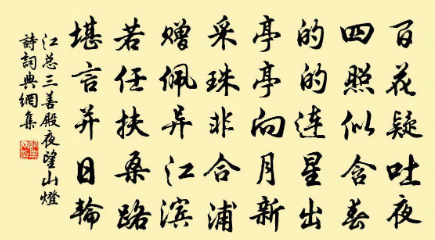 百花疑吐夜
四照似含春
的的连星出
亭亭向月新
采珠非合浦
赠佩异江滨
若任扶桑路
堪言并日轮
江总三善殿夜望山燈
詩詞典網集